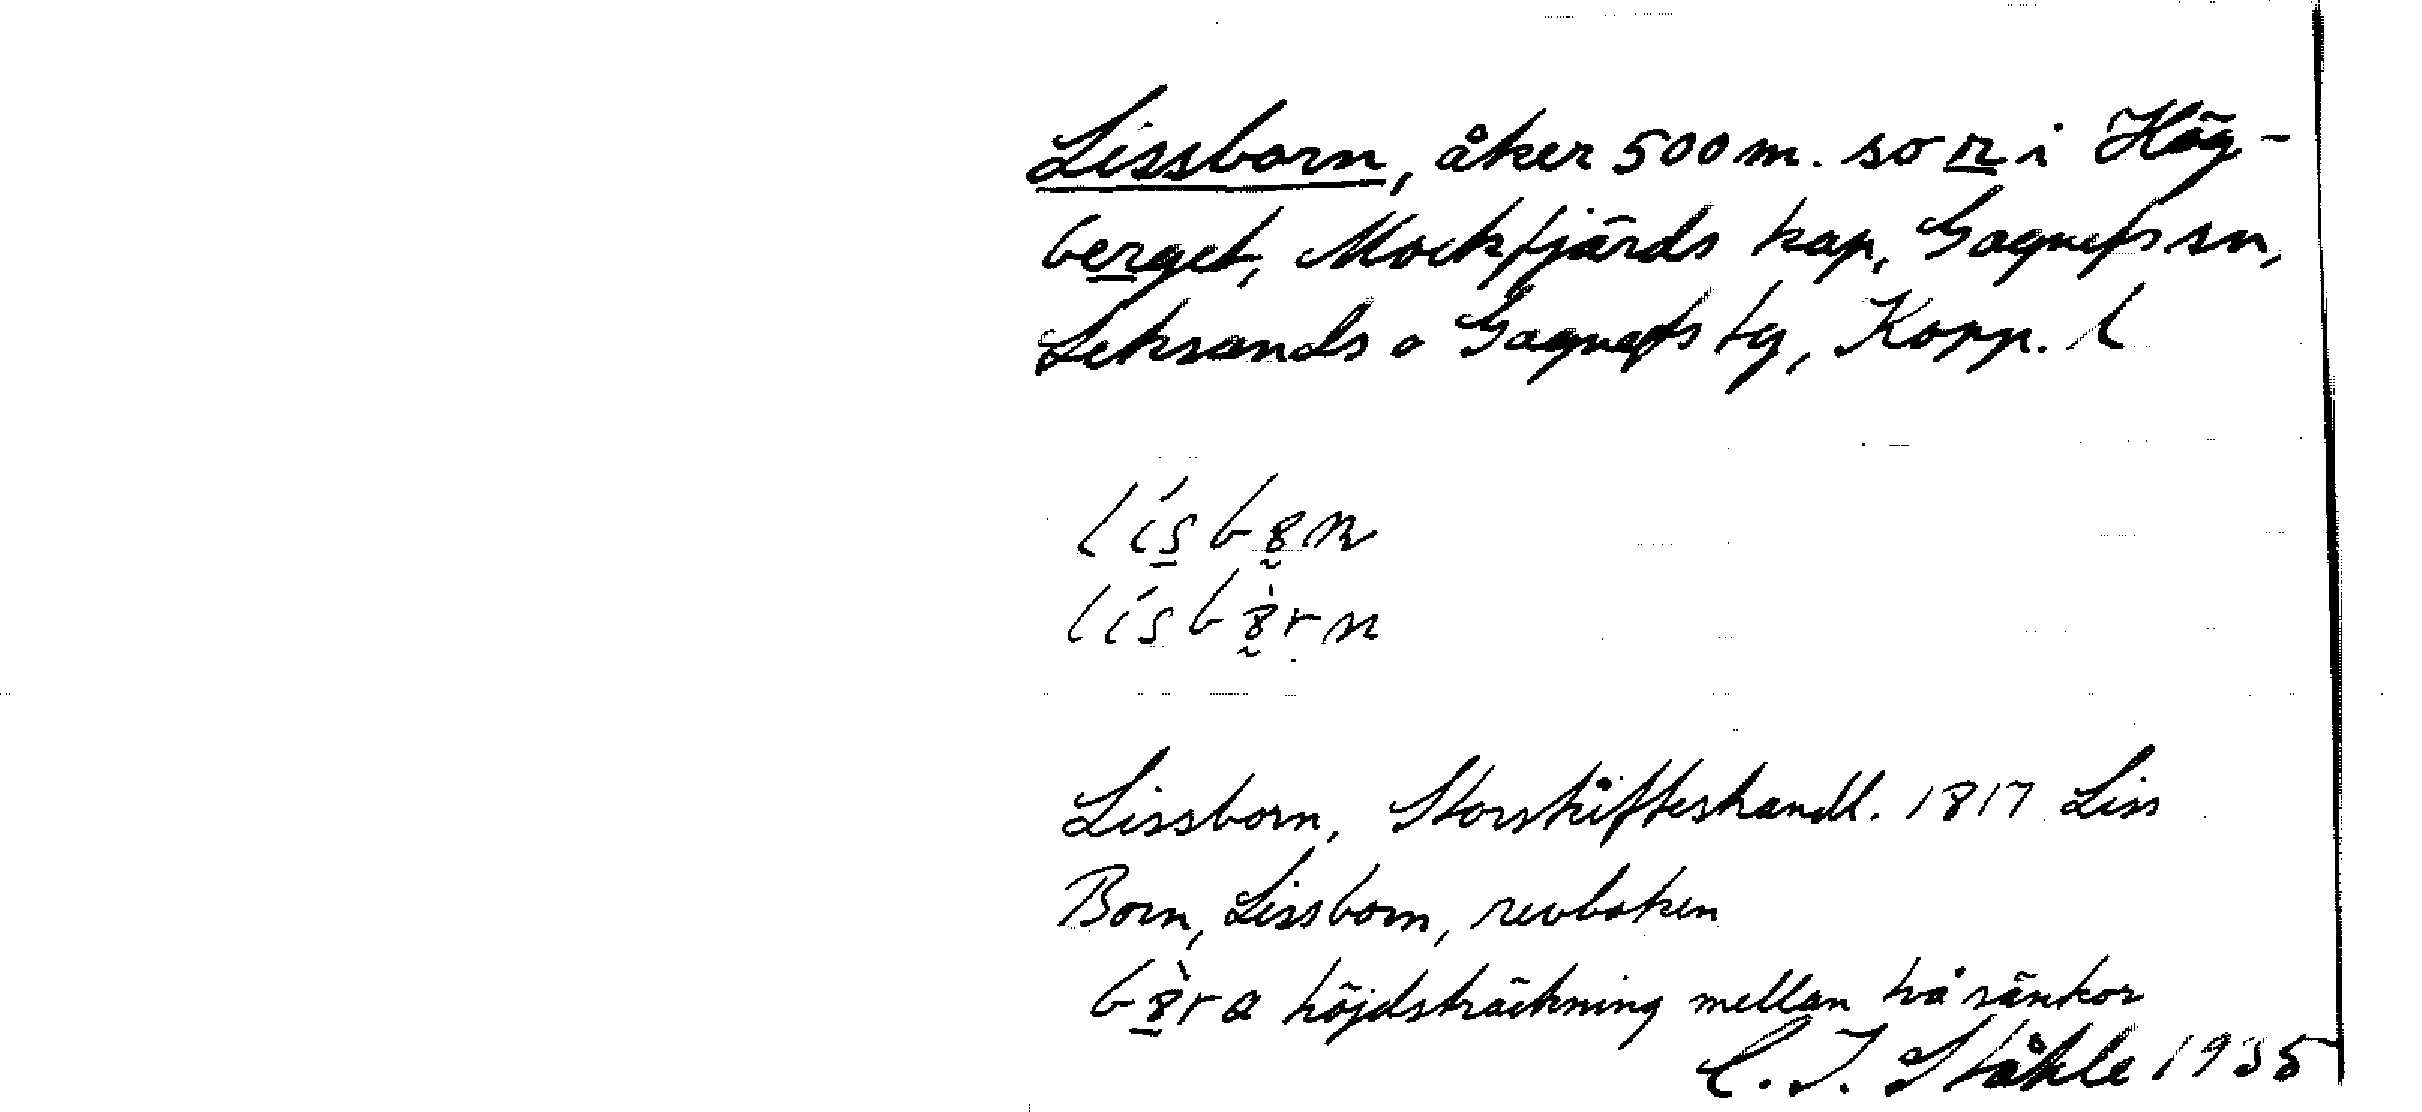 Lissborn, åker 500 m. so n i Hög-
berget, Mockfjärds kap, Gagnefs sn,
Leksands o Gagnefs tg, Kopp. l
Lissborn, Storskifteshandl. 1817 Liss
Born, Lissborn, revboken
höjdsträckning mellan två sänkor
C. I. Ståhle 1935